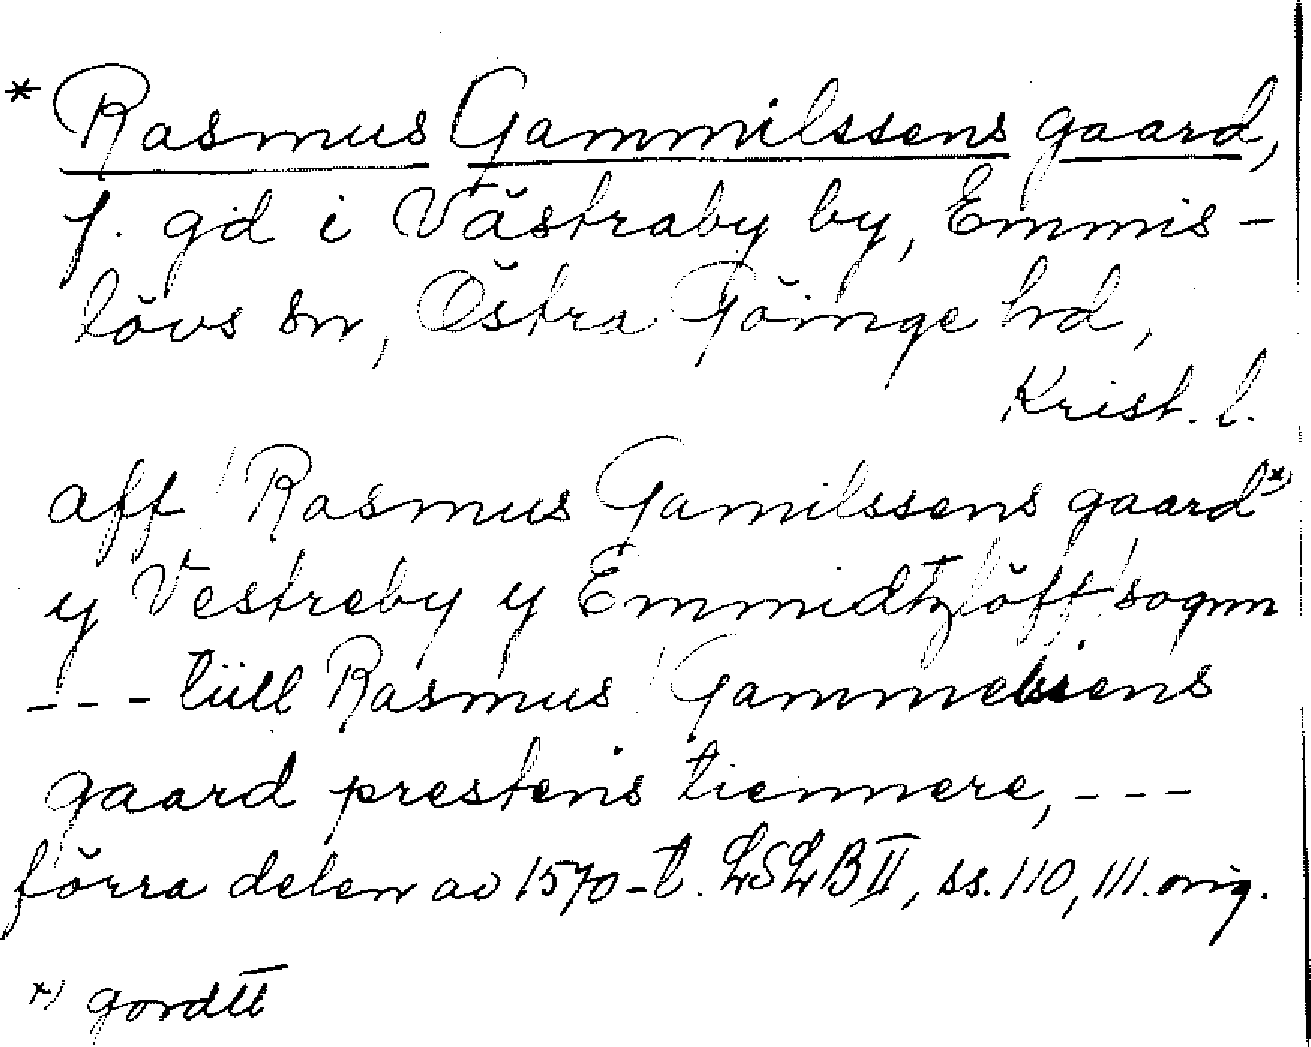 * Rasmus Gammilssens gaard,
f. gd i Västraby by, Emmis-
lövs sn, Östra Göinge hd,
Krist. l.
aff Rasmus Gamilssens gaard *)
y Vestreby y Emmidtzlöff sognn
--- tüll Rasmus Gammelssens
gaard prestens tiennere, ---
förra delen av 1570-t. LSLB II, ss. 110, 111. orig.
*) gordtt